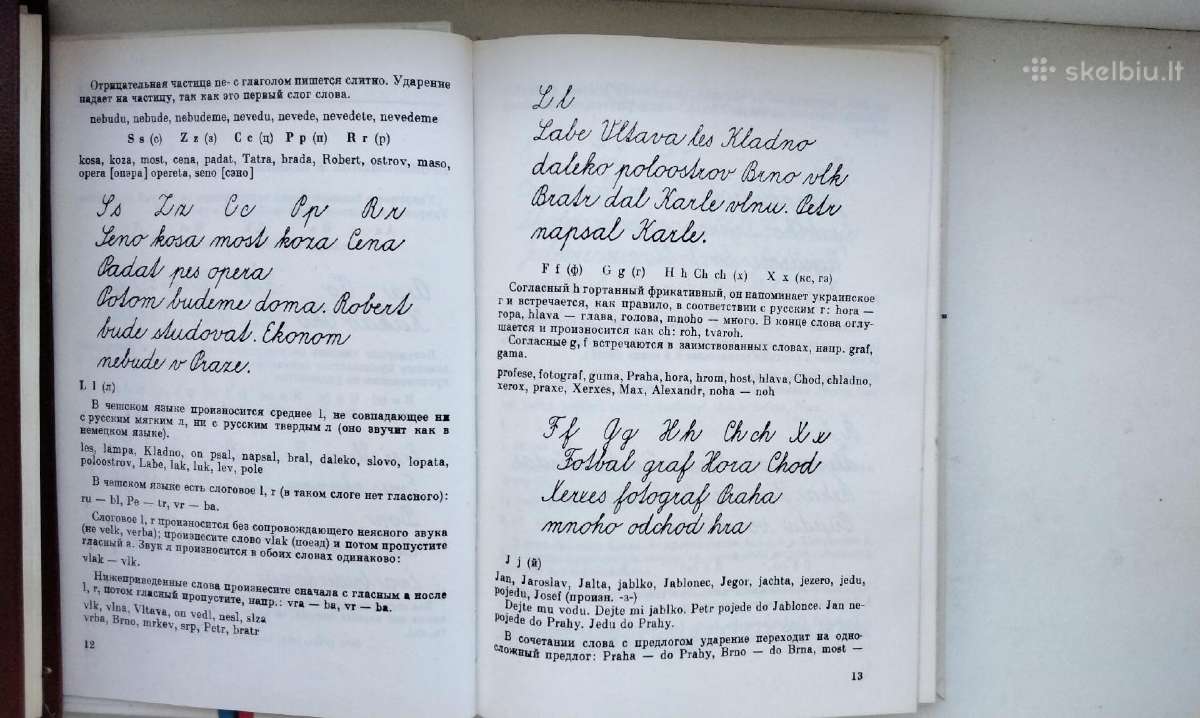 Отрицательная частица ne- с глаголом пишется слитно. Ударение
падает на частицу, так как это первый слог слова.
nebudu, nebude, nebudeme, nevedu, nevede, nevedete, nevedeme
S s (с) Z z (з) C c (ц) P p (п) R r (р)
kosa, koza, most, cena, padat, Tatra, brada, Robert, ostrov, maso,
opera [опэра] opereta, seno [сэно]
Ss Zz Cc Pp Rr
Seno kosa most koza Cena
Padat pes opera
Potom budeme doma. Robert
bude studovat. Ekonom
nebude v Praze.
L l (л)
В чешском языке произносится среднее l, не совпадающее ни
с русским мягким л, ни с русским твердым л (оно звучит как в
немецком языке).
les, lampa, Kladno, on psal, napsal, bral, daleko, slovo, lopata,
poloostrov, Labe, lak, luk, lev, pole
В чешском языке есть слоговое l, r (в таком слоге нет гласного):
ru — bl, Pe — tr, vr — ba.
Слоговое l, r произносится без сопровождающего неясного звука
(не velk, verba); произнесите слово vlak (поезд) и потом пропустите
гласный a. Звук л произносится в обоих словах одинаково:
vlak — vlk.
Нижеприведенные слова произнесите сначала с гласным a после
l, r, потом гласный пропустите, напр.: vra — ba, vr — ba.
vlk, vlna, Vltava, on vedl, nesl, slza
vrba, Brno, mrkev, srp, Petr, bratr
12
L l
Labe Vltava les Kladno
daleko poloostrov Brno vlk
Bratr dal Karle vlnu. Petr
napsal Karle.
F f (ф) G g (г) H h Ch ch (х) X x (кс, гз)
Согласный h гортанный фрикативный, он напоминает украинское
г и встречается, как правило, в соответствии с русским г: hora —
гора, hlava — глава, голова, mnoho — много. В конце слова оглу-
шается и произносится как ch: roh, tvaroh.
Согласные g, f встречаются в заимствованных словах, напр. graf,
gama.
profese, fotograf, guma, Praha, hora, hrom, host, hlava, Chod, chladno,
xerox, praxe, Xerxes, Max, Alexandr, noha — noh
Ff Gg Hh Ch ch Xx
Fotbal graf Hora Chod
Xerxes fotograf Praha
mnoho odchod hra
J j (й)
Jan, Jaroslav, Jalta, jablko, Jablonec, Jegor, jachta, jezero, jedu,
pojedu, Josef (произн. -з-)
Dejte mu vodu. Dejte mi jablko. Petr pojede do Jablonce. Jan ne-
pojede do Prahy. Jedu do Prahy.
В сочетании слова с предлогом ударение переходит на одно-
сложный предлог: Praha — do Prahy, Brno — do Brna, most —
13
skelbiu.lt